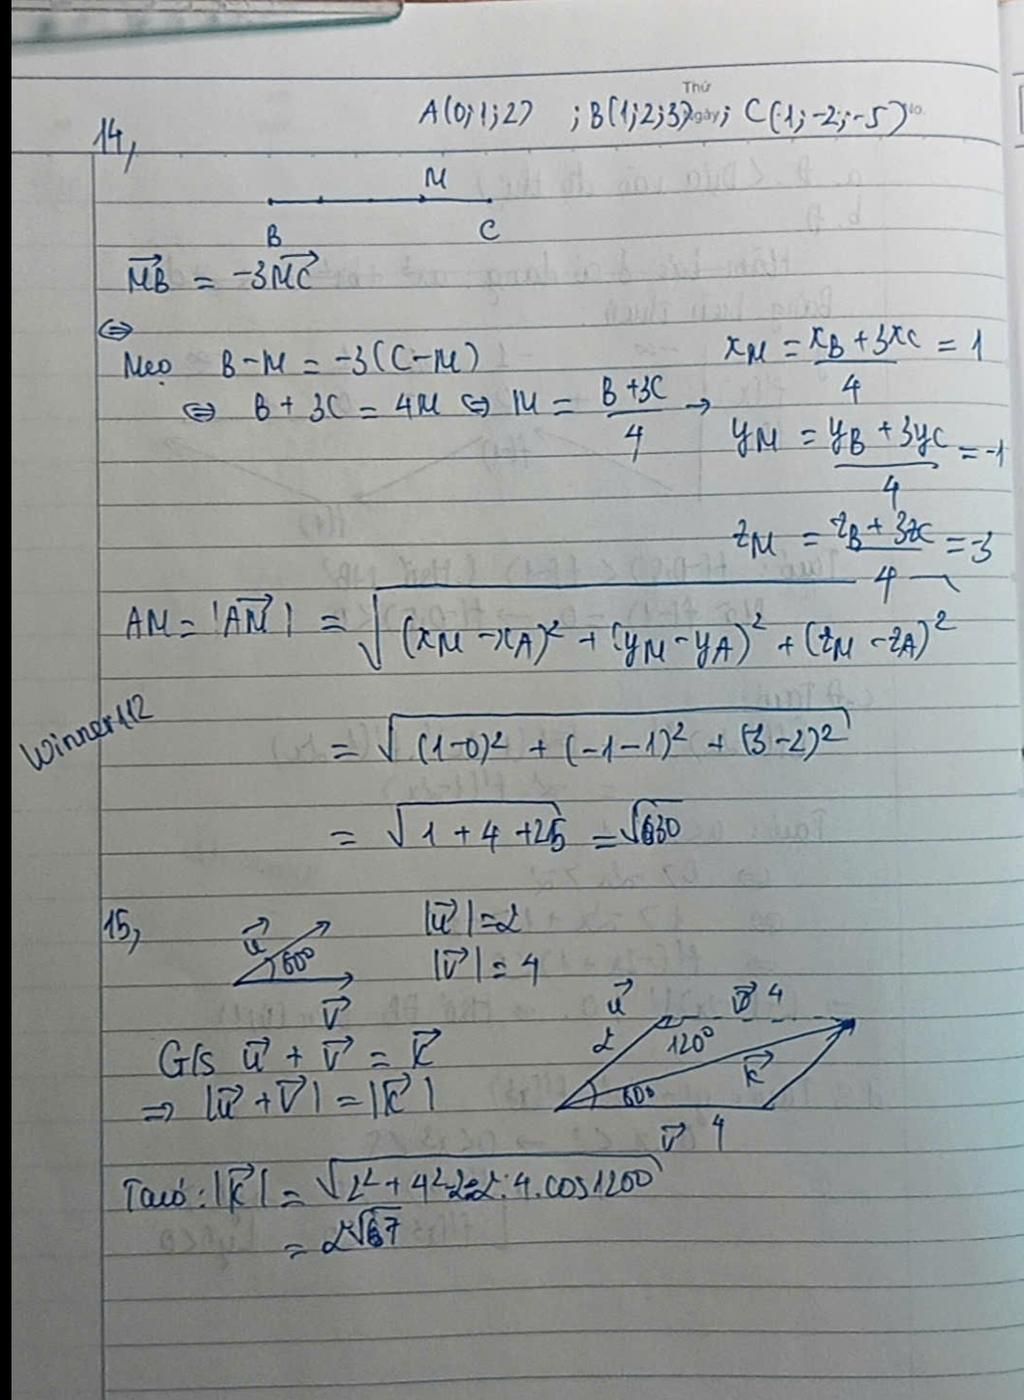 Thứ
A(0;1;2) ; B(1;2;3) ; C(1;-2;-5)
Ngày No.
14,
M
B C
→MB = -3→MC
⇔
Mẹo B-M = -3(C-M)
⇔ B + 3C = 4M ⇔ M = (B+3C)/4 →
xM = (xB + 3xC)/4 = 1
yM = (yB + 3yC)/4 = -1
zM = (zB + 3zC)/4 = -3
AM = |→AM| = √((xM - xA)² + (yM - yA)² + (zM - zA)²)
Winner112
= √((1-0)² + (-1-1)² + (3-2)²)
= √(1 + 4 + 25) = √30
15,
→u 60° →v
|→u| = 2
|→v| = 4
→u 2 →v 4
120°
→k
60°
→v 4
G/s →u + →v = →k
⇒ |→u + →v| = |→k|
Ta có: |→k| = √(2² + 4² - 2.2.4.cos120°)
= 2√7